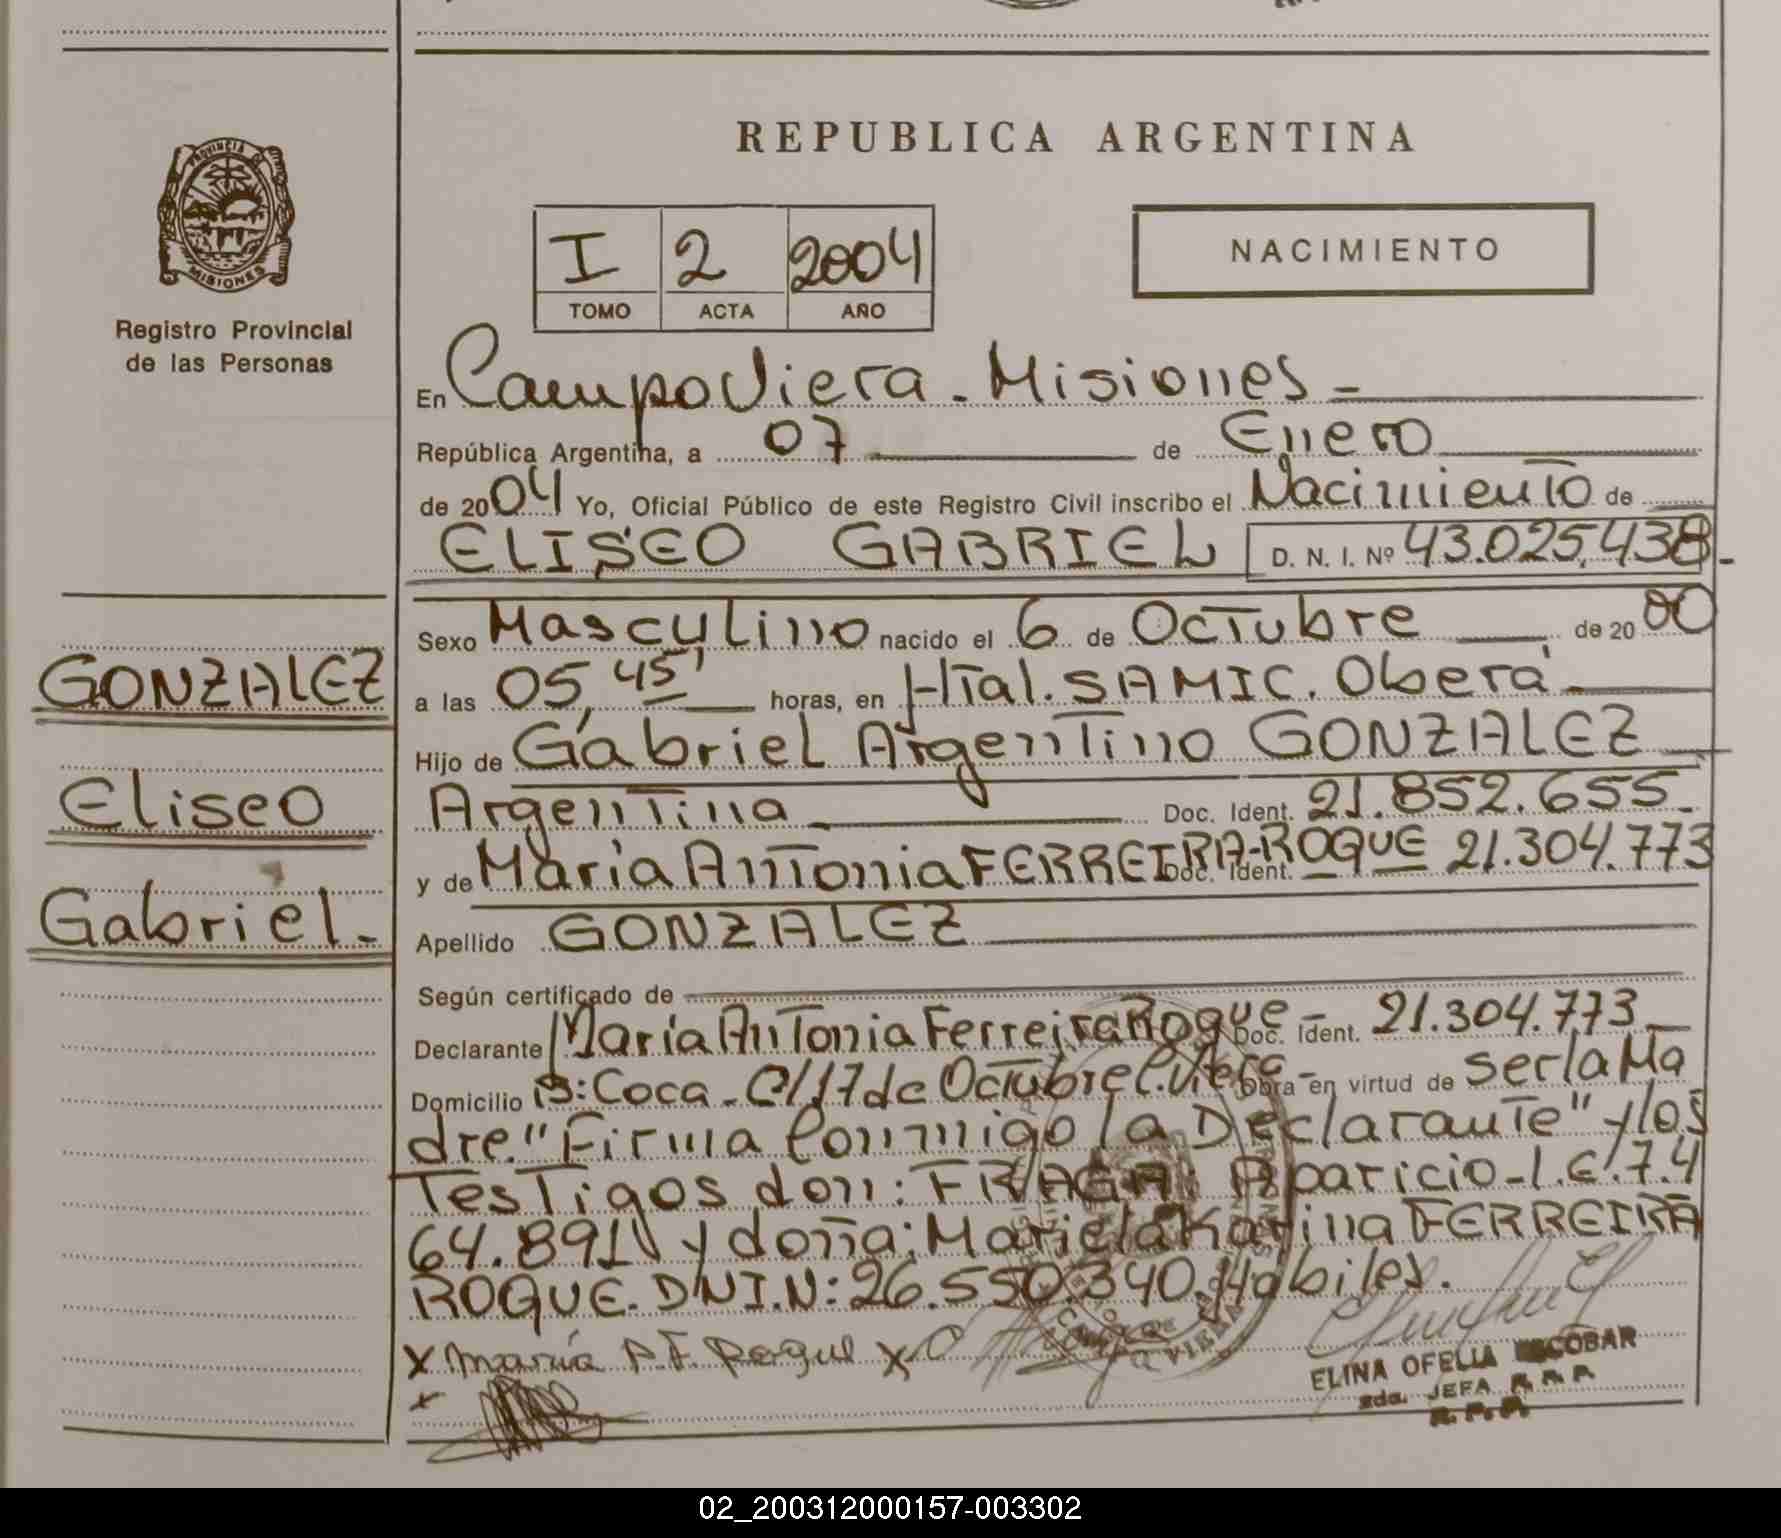 REPUBLICA ARGENTINA
PROVINCIA DE
MISIONES
Registro Provincial
de las Personas
I 2 2004
TOMO ACTA AÑO
NACIMIENTO
En Campo Viera - Misiones -
República Argentina, a 07 de Enero
de 2004 Yo, Oficial Público de este Registro Civil inscribo el Nacimiento de
ELISEO GABRIEL D. N. I. Nº 43.025.438 -
Sexo Masculino nacido el 6 de Octubre de 2000
a las 05,45' horas, en Htal. SAMIC. Oberá
Hijo de Gabriel Argentino GONZALEZ
Argentina Doc. Ident. 21.852.655
y de María Antonia FERREIRA-ROQUE Doc. Ident. 21.304.773
Apellido GONZALEZ
Según certificado de
Declarante María Antonia Ferreira Roque - Doc. Ident. 21.304.773
Domicilio B: Coca - C/17 de Octubre C. Viera - Obra en virtud de ser la Ma
dre. "Firma Conmigo la Declarante" y los
Testigos don: FRAGA; Aparicio - L.E. 7.4
64.891 y doña: Mariela Karina FERREIRA
ROQUE. DNI.N: 26.550.340. Habiles.
x María A. F. Roque x
x
ELINA OFELIA ESCOBAR
2da. JEFA R. P. P.
R. P. P.
GONZALEZ
Eliseo
Gabriel.-
02_200312000157-003302